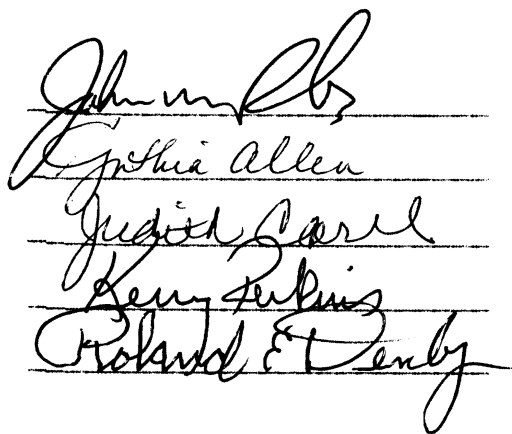 John
Cynthia Allen
Judith
Kerry Perkins
Roland E Denby